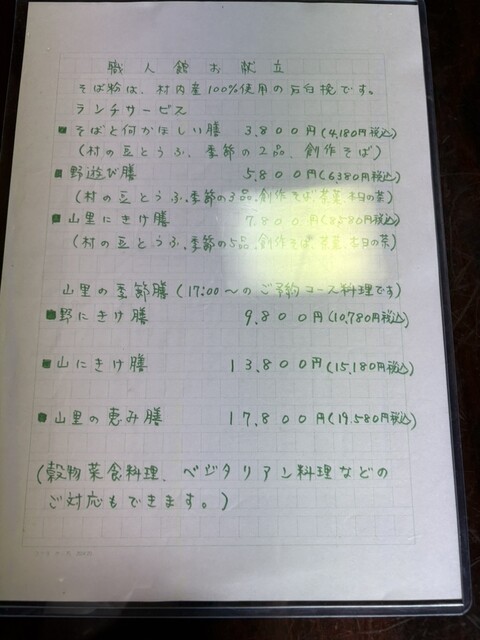 職人館お献立
そば粉は、村内産100%使用の石臼挽です。
ランチサービス
そばと何かほしい膳 3.800円(4,180円税込)
(村の豆とうふ、季節の2品、創作そば)
野遊び膳 5.800円(6380円税込)
(村の豆とうふ、季節の3品、創作そば、茶菓、本日の菜)
山里にきけ膳 7.800円(8580円税込)
(村の豆とうふ、季節の5品、創作そば、茶菓、本日の菜)
山里の季節膳(17:00〜のご予約コース料理です)
野にきけ膳 9.800円(10,780円税込)
山にきけ膳 13.800円(15,180円税込)
山里の恵み膳 17.800円(19.580円税込)
(穀物菜食料理、ベジタリアン料理などの
ご対応もできます。)